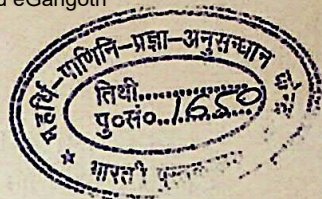 eGangotri
महर्षि-पाणिनि-प्रज्ञा-अनुसन्धान
तिथी..............
पु०सं०..1650
भारती